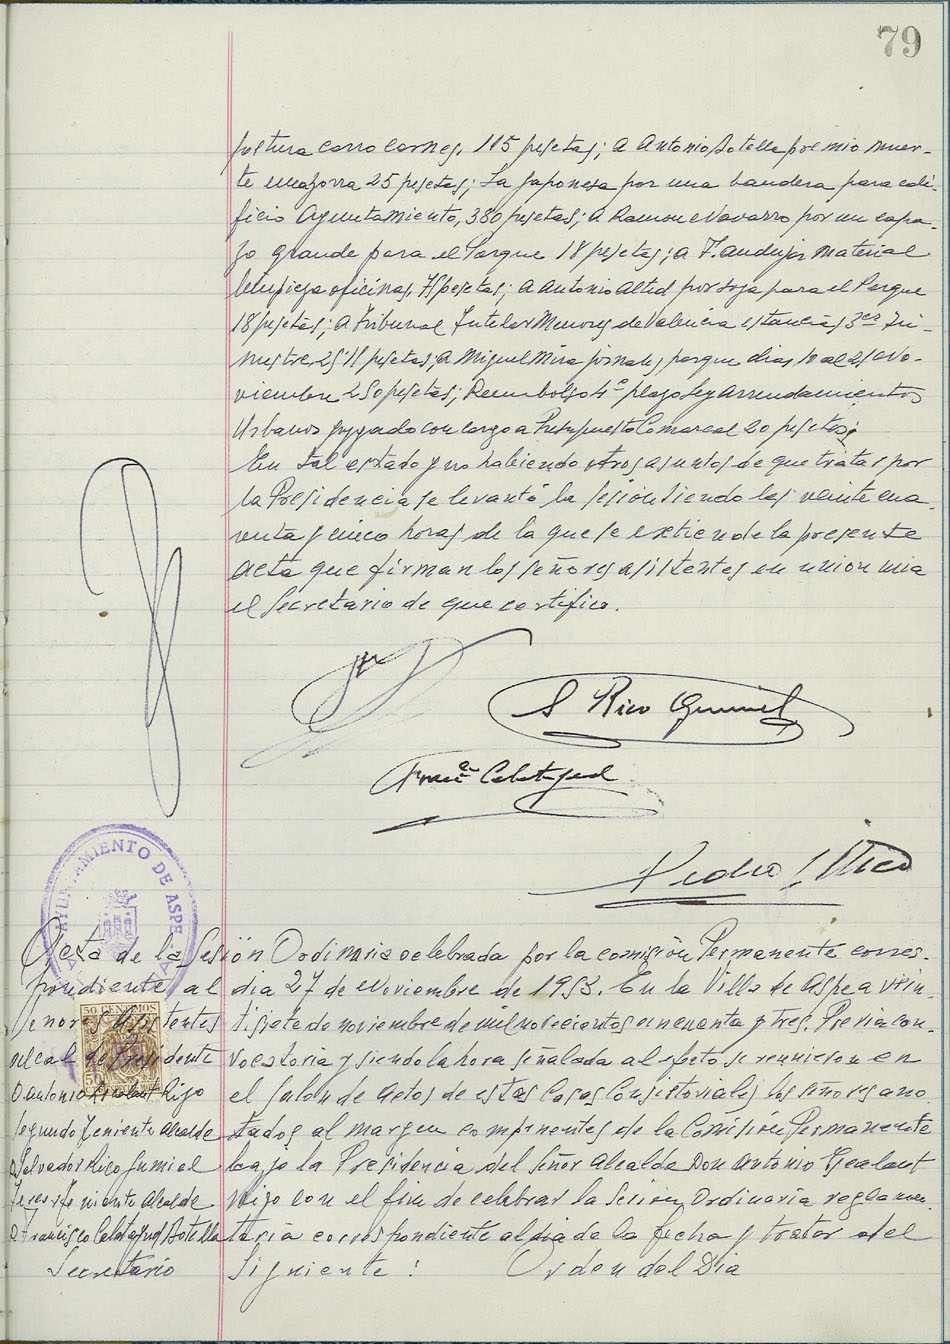 79
postura carro carnes, 115 pesetas; a Antonio Botella premio muer-
te una zorra 25 pesetas; La Japonesa por una bandera para edi-
ficio Ayuntamiento, 380 pesetas; a Ramon Navarro por un capa-
zo grande para el Parque 18 pesetas; a F. Andujar material
limpieza oficinas, pesetas; a Antonio Altid por soja para el Parque
18 pesetas; a Tribunal Tutelar Menores de Valencia estancias 3er Tri-
mestre, pesetas; a Miguel Mira jornales parque dias 10 al 21 No-
viembre 250 pesetas; Reembolso 4º plazo ley arrendamientos
Urbanos pagado con cargo a Presupuesto Comarcal 20 pesetas;
En tal estado y no habiendo otros asuntos de que tratar por
la Presidencia se levantó la sesión siendo las veinte cua-
renta y cinco horas de la que se extiende la presente
acta que firman los señores asistentes en union mia
el Secretario de que certifico.
S Rico Gumiel
Franco Calatayud
Pedro
AYUNTAMIENTO DE ASPE
Acta de la Sesión Ordinaria celebrada por la comisión Permanente corres-
pondiente al dia 27 de Noviembre de 1953. En la Villa de Aspe a vein-
tisiete de noviembre de mil novecientos cincuenta y tres. Previa con-
vocatoria y siendo la hora señalada al efecto se reunieron en
el Salon de Actos de estas Casas Consistoriales los señores ano-
tados al margen componentes de la Comisión Permanente
bajo la Presidencia del Señor Alcalde Don Antonio Gealant
Rizo con el fin de celebrar la Sesión Ordinaria reglamen-
taria correspondiente al dia de la fecha y tratar del
Siguiente: Orden del Dia
50 CENTIMOS
Señores Asistentes
Alcalde Presidente
D Antonio Gealant Rizo
Segundo Teniente Alcalde
D Salvador Rico Gumiel
Tercer Teniente Alcalde
D Francisco Calatayud Botella
Secretario